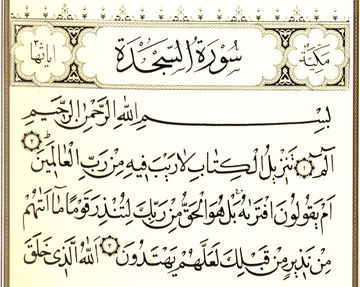 مكية سورة السجدة آياتها
بسم الله الرحمن الرحيم
الٓمٓ ١ تَنْزِيلُ الْكِتَابِ لَارَيْبَ فِيهِ مِنْ رَبِّ الْعَالَمِينَ ٢
اَمْ يَقُولُونَ افْتَرٰيهُ بَلْ هُوَ الْحَقُّ مِنْ رَبِّكَ لِتُنْذِرَ قَوْمًا مَآ اَتٰيهُمْ
مِنْ نَذِيرٍ مِنْ قَبْلِكَ لَعَلَّهُمْ يَهْتَدُونَ ٣ اَللهُ الَّذِى خَلَقَ